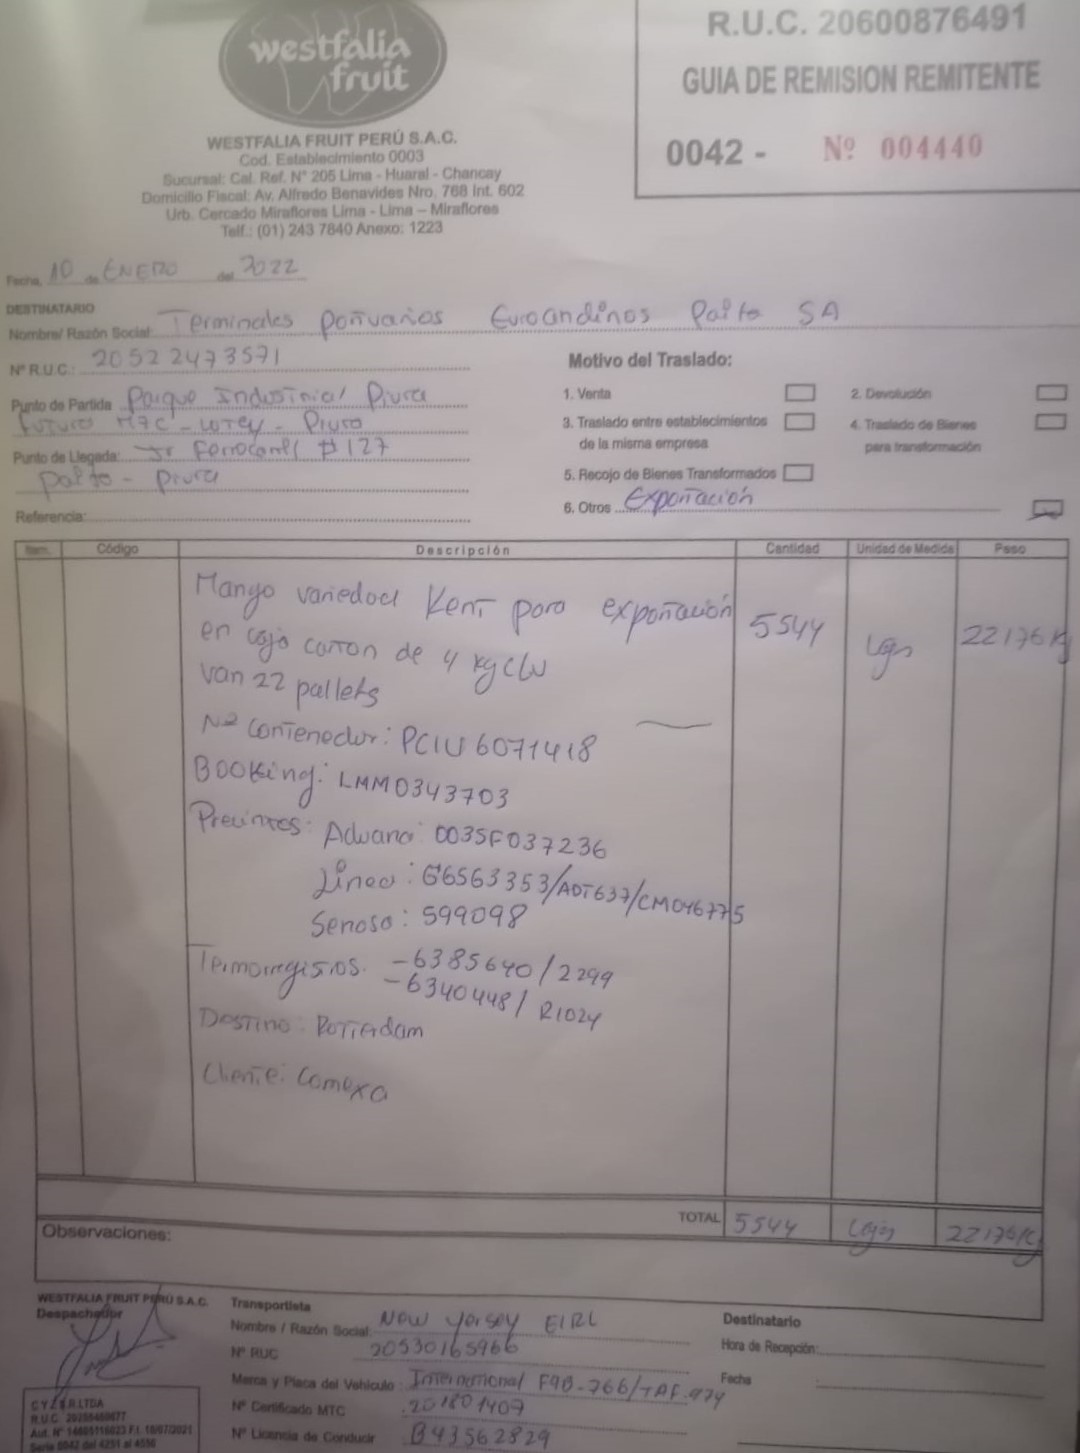 westfalia
fruit
R.U.C. 20600876491
GUIA DE REMISION REMITENTE
0042 - Nº 004440
WESTFALIA FRUIT PERÚ S.A.C.
Cod. Establecimiento 0003
Sucursal: Cal. Ref. N° 205 Lima - Huaral - Chancay
Domicilio Fiscal: Av. Alfredo Benavides Nro. 768 Int. 602
Urb. Cercado Miraflores Lima - Lima – Miraflores
Telf.: (01) 243 7840 Anexo: 1223
Fecha, 10 de ENERO del 2022
DESTINATARIO
Nombre/ Razón Social: Terminales portuarios Euroandinos Paita SA
Nº R.U.C.: 20522473571
Motivo del Traslado:
Punto de Partida Parque Industrial Piura
futuro M7C - LOTE4 - Piura
Punto de Llegada: Jr Ferrocarril # 127
Paita - Piura
Referencia:
1. Venta
2. Devolución
3. Traslado entre establecimientos
de la misma empresa
4. Traslado de Bienes
para transformación
5. Recojo de Bienes Transformados
6. Otros Exportación
Item. Código Descripción Cantidad Unidad de Medida Peso
Mango variedad Kent para exportación 5544 22176 Kg
en caja carton de 4 kg c/u
van 22 pallets
Nº Contenedor: PCIU 6071418
Booking: LMM0343703
Precintos: Aduana: 0035F037236
Linea: G6563353/ADT637/CM046775
Senasa: 599098
Termoregistros. -6385640/2299
-6340448/R1024
Destino: Rotterdam
Cliente: Comexa
TOTAL 5544 cajas 22176Kg
Observaciones:
WESTFALIA FRUIT PERÚ S.A.C.
Despachador
Transportista
Nombre / Razón Social: New Yorsey EIRL
Nº RUC 20530165966
Marca y Placa del Vehículo: International F9D-766/TAF-974
Nº Certificado MTC 201801407
Nº Licencia de Conducir B43562829
Destinatario
Hora de Recepción:
Fecha
Serie 0042 del 4251 al 4550